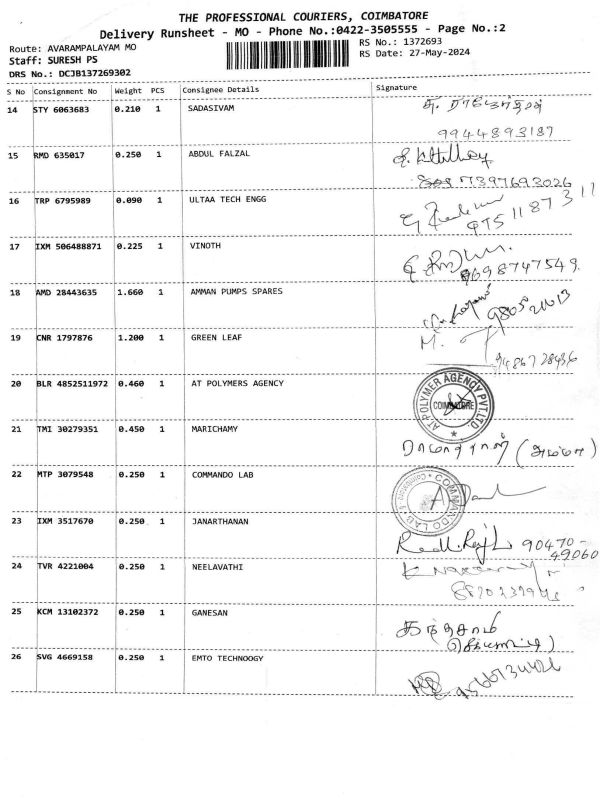 THE PROFESSIONAL COURIERS, COIMBATORE
Delivery Runsheet - MO - Phone No.:0422-3505555 - Page No.:2
Route: AVARAMPALAYAM MO
RS No.: 1372693
Staff: SURESH PS
RS Date: 27-May-2024
DRS No.: DCJB137269302
S No Consignment No Weight PCS Consignee Details Signature
14 STY 6063683 0.210 1 SADASIVAM
9944893187
15 RMD 635017 0.250 1 ABDUL FALZAL
7397693026
16 TRP 6795989 0.090 1 ULTAA TECH ENGG
9751187311
17 IXM 506488871 0.225 1 VINOTH
9698747549
18 AMD 28443635 1.660 1 AMMAN PUMPS SPARES
19 CNR 1797876 1.200 1 GREEN LEAF M.
9486728436
20 BLR 4852511972 0.460 1 AT POLYMERS AGENCY
AT POLYMER AGENCY PVT.LTD.
COIMBATORE
21 TMI 30279351 0.450 1 MARICHAMY
(அம்மா)
22 MTP 3079548 0.250 1 COMMANDO LAB
COMMANDO LAB
23 IXM 3517670 0.250 1 JANARTHANAN
90470-
49060
24 TVR 4221004 0.250 1 NEELAVATHI
25 KCM 13102372 0.250 1 GANESAN
கந்தசாமி
26 SVG 4669158 0.250 1 EMTO TECHNOOGY